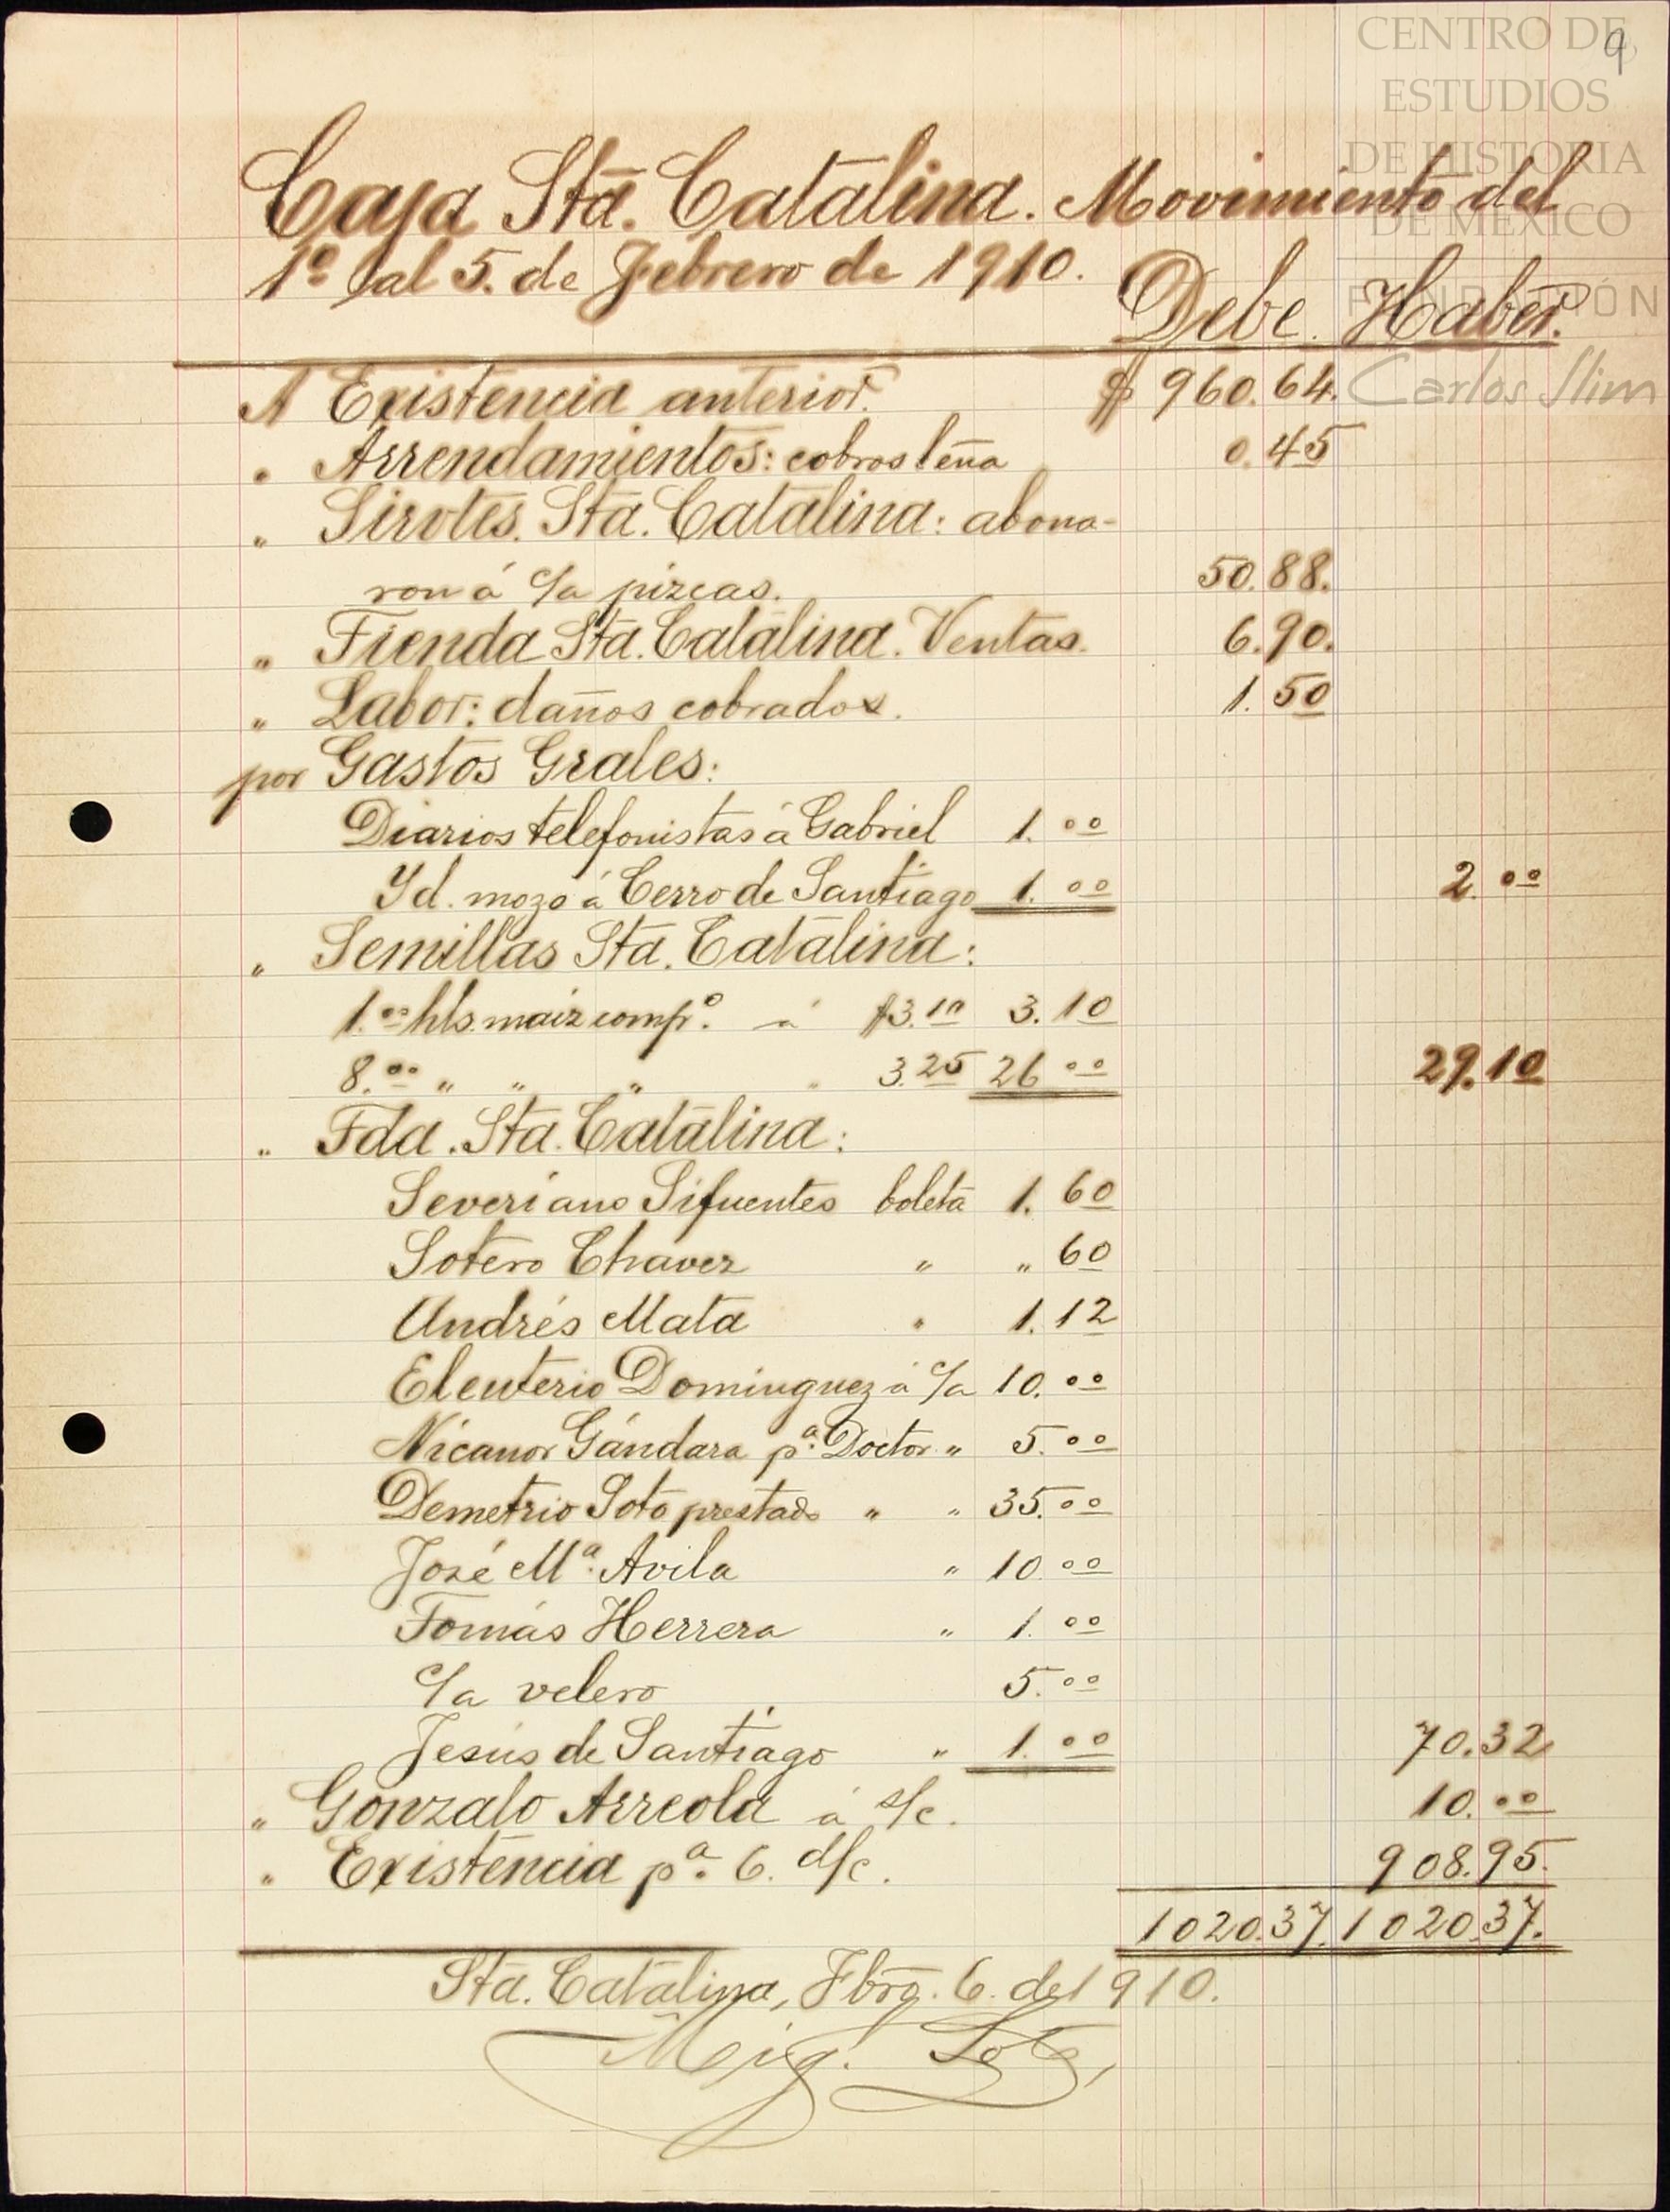 CENTRO DE
ESTUDIOS
DE HISTORIA
DE MÉXICO
FUNDACIÓN
Carlos Slim
9
Caja Sta. Catalina. Movimiento del
1º al 5. de Febrero de 1910.
Debe. Haber.
A Existencia anterior. $ 960.64.
" Arrendamientos: cobros leña 0.45
" Sirvtes. Sta. Catalina: abona-
ron á c/a pizcas. 50.88.
" Tienda Sta. Catalina. Ventas. 6.90.
" Labor: daños cobrados. 1.50
por Gastos Grales:
Diarios telefonistas á Gabriel 1.00
Yd. mozo á Cerro de Santiago 1.00 2.00
" Semillas Sta. Catalina:
1.00 hls. maiz comp.º á $3.10 3.10
8.00 " " " " 3.25 26.00 29.10
" Tda. Sta. Catalina:
Severiano Sifuentes boleta 1.60
Sotero Chavez " " 60
Andrés Mata " 1.12
Eleuterio Dominguez á c/a 10.00
Nicanor Gándara p.ª Doctor " 5.00
Demetrio Soto prestado " " 35.00
José M.ª Avila " 10.00
Tomás Herrera " 1.00
c/a velero 5.00
Jesús de Santiago " 1.00 70.32
" Gonzalo Arreola á s/c. 10.00
" Existencia p.ª 6. d/c. 908.95.
1020.37. 1020.37.
Sta. Catalina, Fbro. 6. de 1910.
Mig. Soto